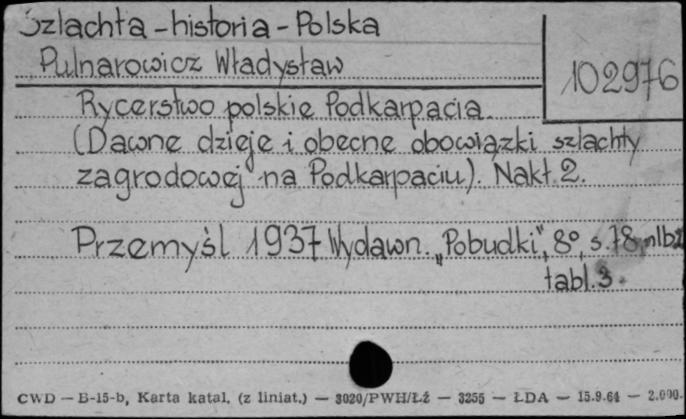 Szlachta - historia - Polska
Pulnarowicz Władysław
102976
Rycerstwo polskie Podkarpacia.
(Dawne dzieje i obecne obowiązki szlachty
zagrodowej na Podkarpaciu). Nakł. 2.
Przemyśl 1937 Wydawn. „Pobudki", 8°, s. 78, nlb
tabl. 3.
CWD — B-15-b, Karta katal. (z liniat.) — 3020/PWH/Łź — 3255 — ŁDA — 15.9.64 — 2.000.